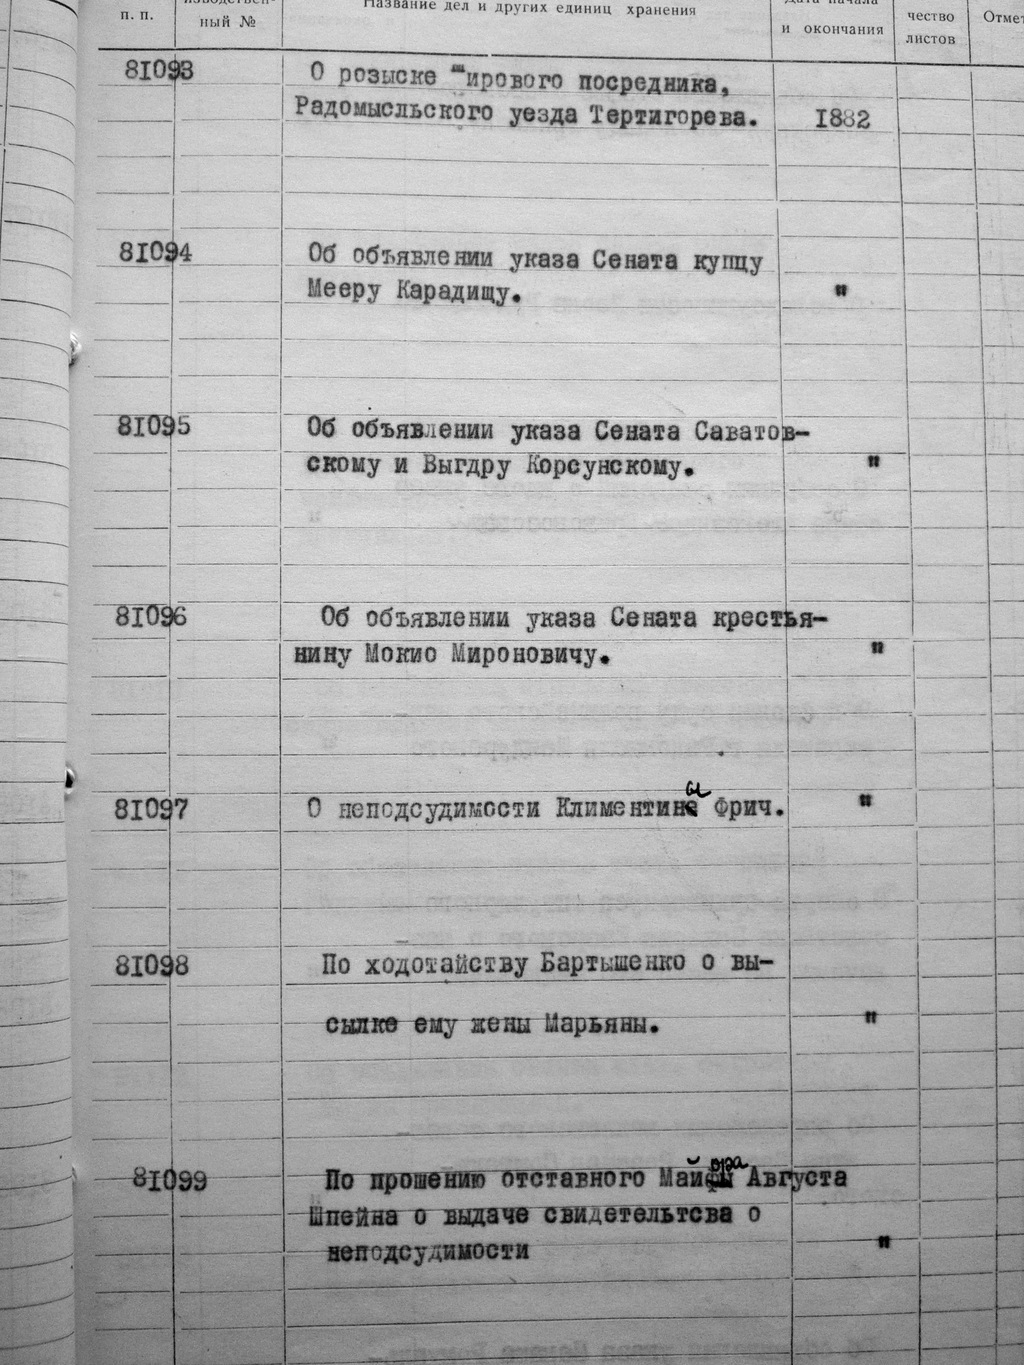 п. п.
ный №
Название дел и других единиц хранения
Дата начала
и окончания
чество
листов
Отмет
81093
О розыске мирового посредника,
Радомысльского уезда Тертигорева.
1882
81094
Об объявлении указа Сената купцу
Мееру Карадищу.
"
81095
Об объявлении указа Сената Саватов-
скому и Выгдру Корсунскому.
"
81096
Об объявлении указа Сената крестья-
нину Мокию Мироновичу.
"
81097
О неподсудимости Климентины Фрич.
"
81098
По ходотайству Бартышенко о вы-
сылке ему жены Марьяны.
"
81099
По прошению отставного Майора Августа
Шпейна о выдаче свидетельтсва о
неподсудимости
"